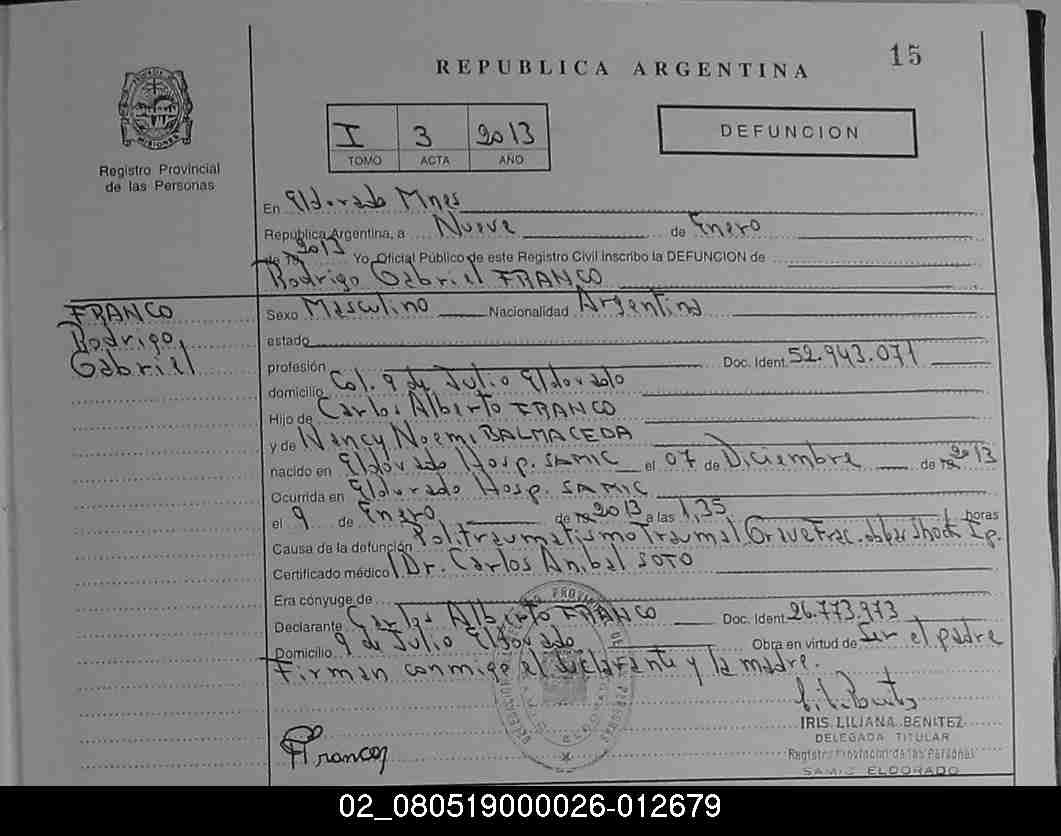 15
REPUBLICA ARGENTINA
MISIONES
Registro Provincial
de las Personas
I 3 2013
TOMO ACTA AÑO
DEFUNCION
En Eldorado Mnes
Republica Argentina, a Nueve de Enero
de 19 2013 Yo, Oficial Público de este Registro Civil inscribo la DEFUNCION de
Rodrigo Gabriel FRANCO
FRANCO
Rodrigo
Gabriel
Sexo Masculino Nacionalidad Argentina
estado
profesión Doc. Ident. 52.943.071
domicilio Col. 9 de Julio Eldorado
Hijo de Carlos Alberto FRANCO
y de Nancy Noemi BALMACEDA
nacido en Eldorado Hosp. SAMIC el 07 de Diciembre de 19 2013
Ocurrida en Eldorado Hosp. SAMIC
el 9 de Enero de 19 2013 a las 1,35 horas
Causa de la defunción Politraumatismo Grave Frac.
Certificado médico Dr. Carlos Anibal SOTO
Era cónyuge de
Declarante Carlos Alberto FRANCO Doc. Ident. 26.773.973
Domicilio 9 de Julio Eldorado Obra en virtud de Ser el padre
Firman conmigo el declarante y la madre.
Franco
IRIS LILIANA BENITEZ
DELEGADA TITULAR
Registro Provincial de las Personas
SAMIC ELDORADO
02_080519000026-012679